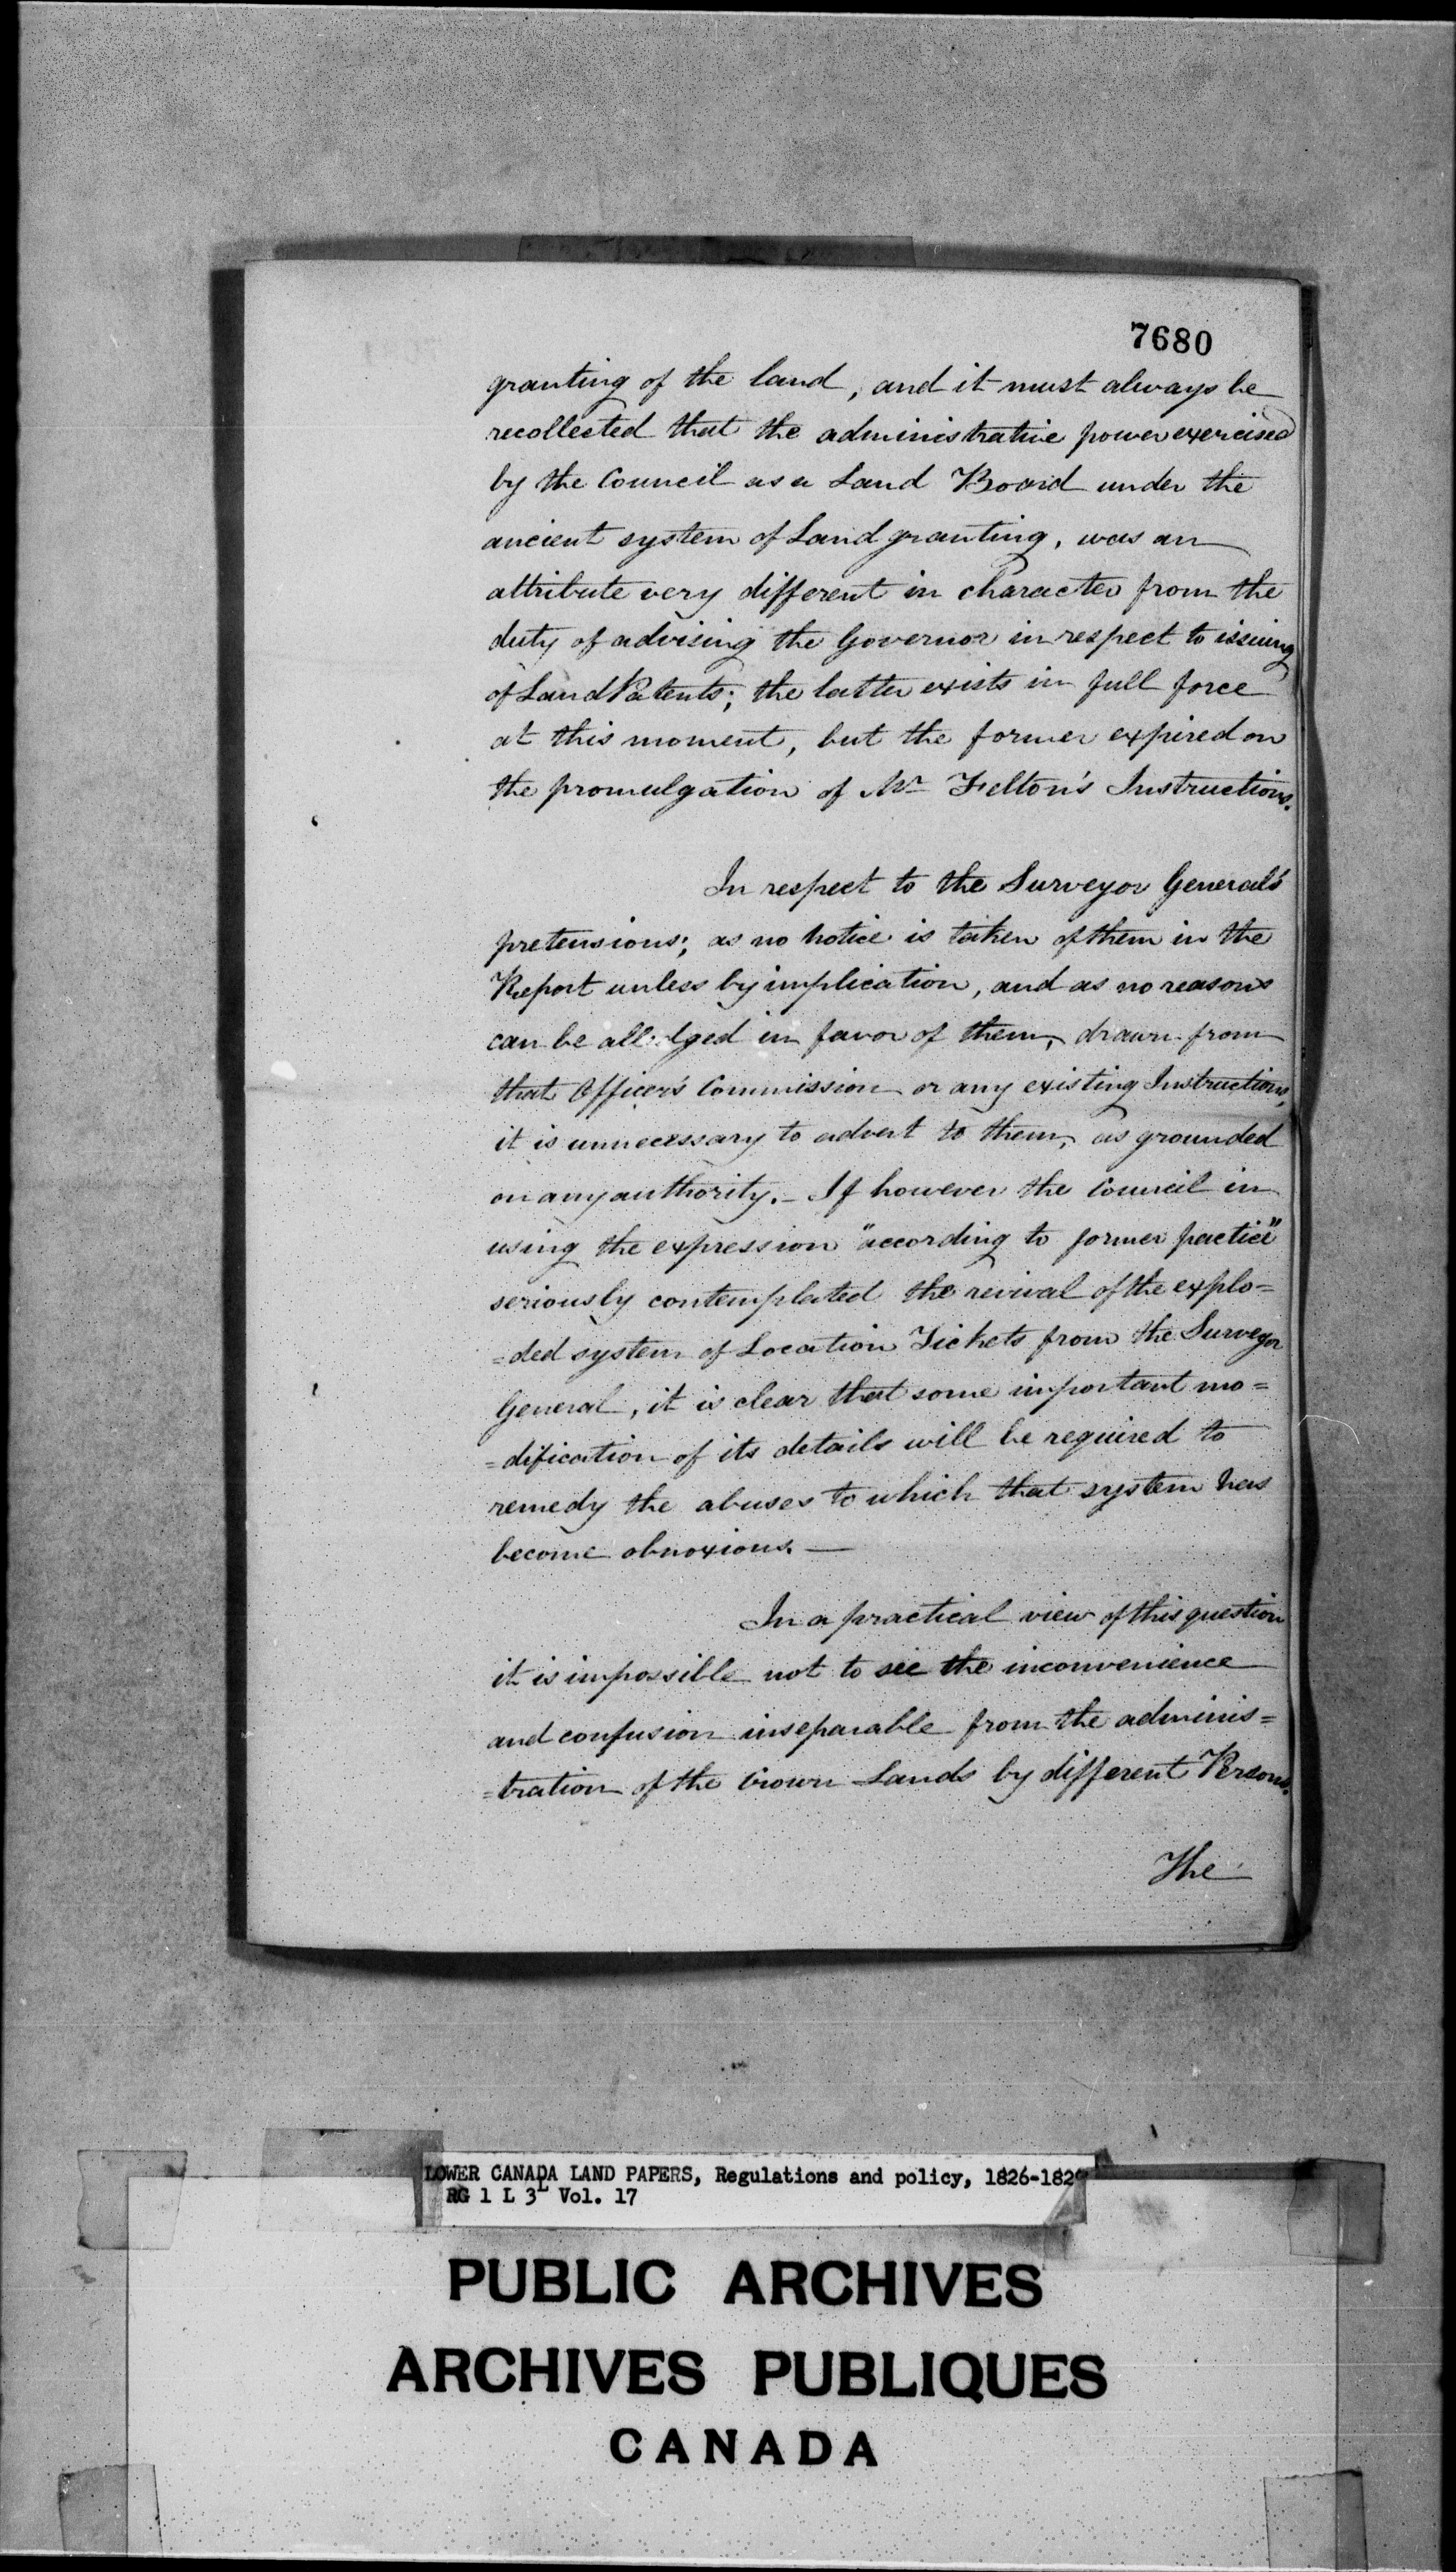 7680
granting of the land, and it must always be
recollected that the administrative power exercised
by the Council as a Land Board under the
ancient system of Land granting, was an
attribute very different in character from the
duty of advising the Governor in respect to issuing
of Land Patents; the latter exists in full force
at this moment, but the former expired on
the promulgation of Mr Felton's Instructions.
In respect to the Surveyor General's
pretensions; as no notice is taken of them in the
Report unless by implication, and as no reasons
can be alledged in favor of them, drawn from
that Officer's Commission or any existing Instructions,
it is unnecessary to advert to them, as grounded
on any authority. - If however the Council in
using the expression "according to former practice"
seriously contemplated the revival of the explo=
=ded system of Location Tickets from the Surveyor
General, it is clear that some important mo=
=dification of its details will be required to
remedy the abuses to which that system has
become obnoxious. —
In a practical view of this question
it is impossible not to see the inconvenience
and confusion inseparable from the adminis=
=tration of the Crown Lands by different Persons.
The
LOWER CANADA LAND PAPERS, Regulations and policy, 1826-1829
RG 1 L 3L Vol. 17
PUBLIC ARCHIVES
ARCHIVES PUBLIQUES
CANADA